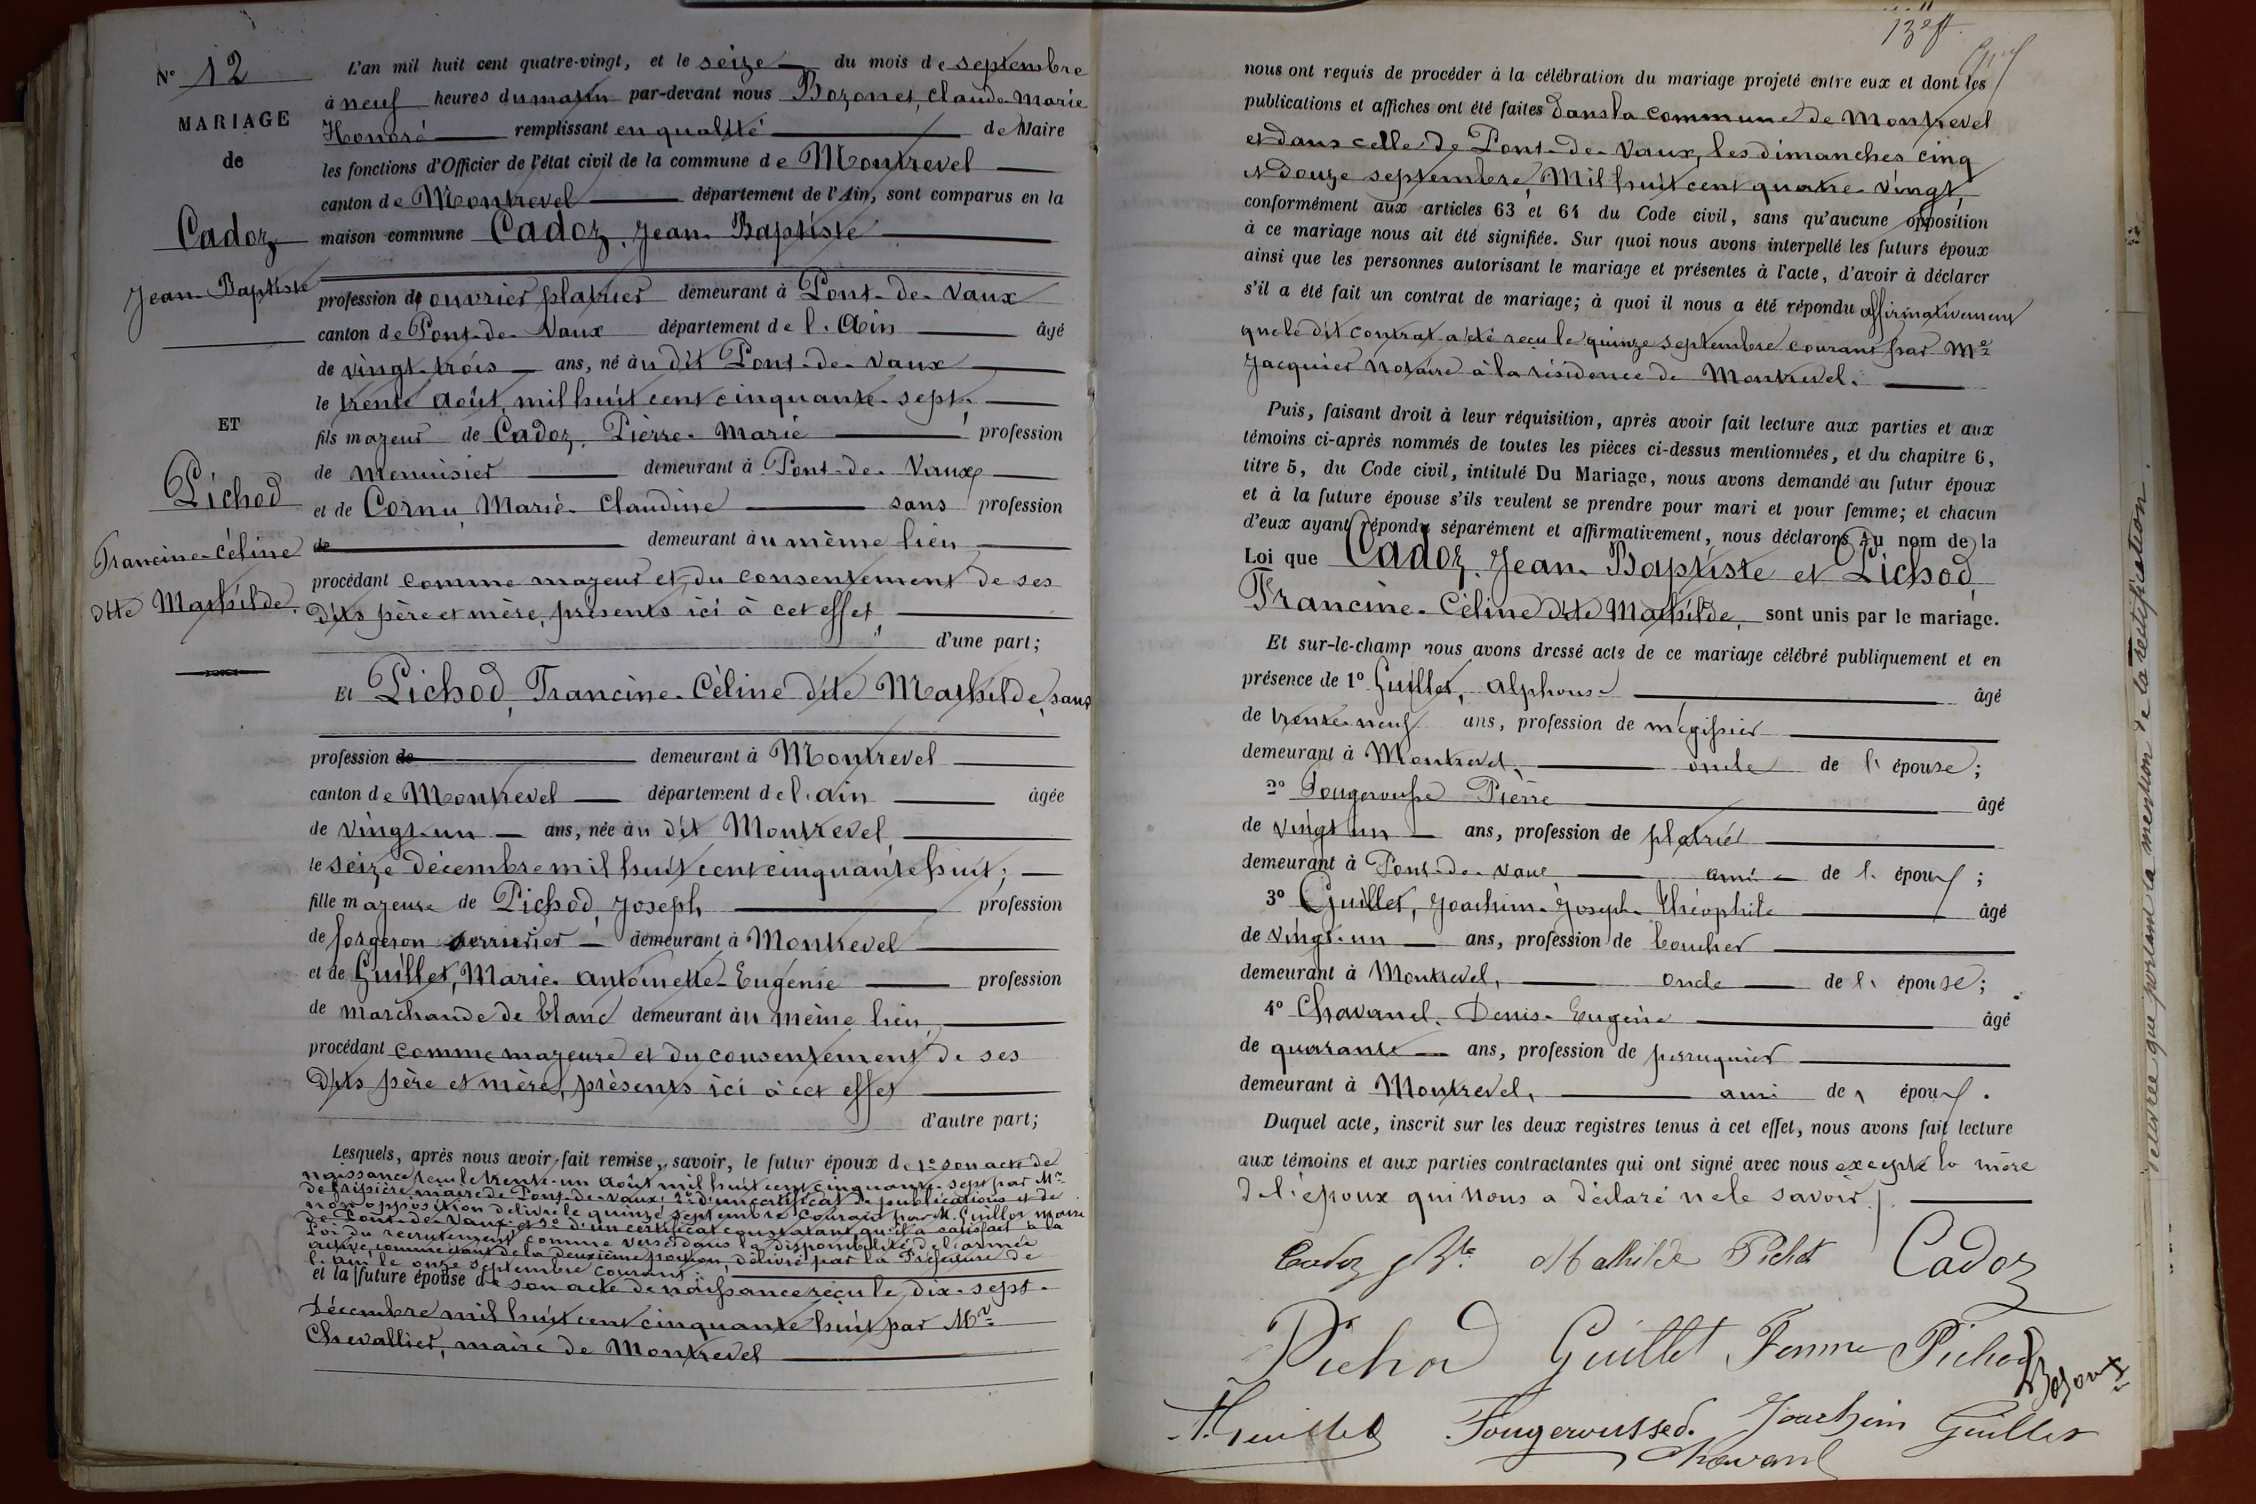 N° 12
MARIAGE
de
Cadoz
Jean-Baptiste
ET
Pichod
Francine-Céline
dite Mathilde.
L'an mil huit cent quatre-vingt, et le seize du mois de septembre
à neuf heures du matin par-devant nous Bozonet, Claude Marie
Honoré remplissant en qualité de Maire
les fonctions d'Officier de l'état civil de la commune de Montrevel
canton de Montrevel département de l'Ain, sont comparus en la
maison commune Cadoz, Jean-Baptiste
profession de ouvrier platrier demeurant à Pont-de-Vaux
canton de Pont-de-Vaux département de l'Ain âgé
de vingt-trois ans, né au dit Pont-de-Vaux
le trente Août, mil huit cent cinquante-sept,
fils majeur de Cadoz, Pierre-Marie profession
de menuisier demeurant à Pont-de-Vaux
et de Cornu Marie-Claudine sans profession
de demeurant au même lieu
procédant comme majeur et du consentement de ses
dits père et mère, présents ici à cet effet,
d'une part;
Et Pichod, Francine-Céline dite Mathilde, sans
profession de demeurant à Montrevel
canton de Montrevel département de l'ain âgée
de vingt-un ans, née au dit Montrevel,
le seize décembre mil huit cent cinquante huit;
fille majeure de Pichod, Joseph profession
de forgeron serrurier demeurant à Montrevel
et de Guillet, Marie-Antoinette-Eugénie profession
de marchande de blanc demeurant au même lieu,
procédant comme majeure et du consentement de ses
dits père et mère, présents ici à cet effet
d'autre part;
Lesquels, après nous avoir fait remise, savoir, le futur époux de 1° son acte de
naissance reçu le trente-un Août mil huit cent cinquante-sept par Mr
maire de Pont-de-Vaux, 2° d'un certificat de publications et de
non opposition délivré le quinze septembre courant par M. Guillot maire
de Pont-de-Vaux, et 3° d'un certificat constatant qu'il a satisfait à la
loi du recrutement comme versé dans la disponibilité de l'armée
active, comme étant de la deuxième portion, délivré par la Préfecture de
l'ain le onze septembre courant;
et la future épouse de son acte de naissance reçu le dix-sept-
Décembre mil huit cent cinquante huit par Mr
Chevallier, maire de Montrevel
nous ont requis de procéder à la célébration du mariage projeté entre eux et dont les
publications et affiches ont été faites dans la commune de Montrevel
et dans celle de Pont-de-Vaux, les dimanches cinq
et douze septembre, Mil huit cent quatre-vingt,
conformément aux articles 63 et 64 du Code civil, sans qu'aucune opposition
à ce mariage nous ait été signifiée. Sur quoi nous avons interpellé les futurs époux
ainsi que les personnes autorisant le mariage et présentes à l'acte, d'avoir à déclarer
s'il a été fait un contrat de mariage; à quoi il nous a été répondu affirmativement
que le dit contrat a été reçu le quinze septembre courant par Me
Jacquier Notaire à la résidence de Montrevel.
Puis, faisant droit à leur réquisition, après avoir fait lecture aux parties et aux
témoins ci-après nommés de toutes les pièces ci-dessus mentionnées, et du chapitre 6,
titre 5, du Code civil, intitulé Du Mariage, nous avons demandé au futur époux
et à la future épouse s'ils veulent se prendre pour mari et pour femme; et chacun
d'eux ayant répondu séparément et affirmativement, nous déclarons au nom de la
Loi que Cadoz, Jean-Baptiste et Pichod
Francine-Céline dite Mathilde, sont unis par le mariage.
Et sur-le-champ nous avons dressé acte de ce mariage célébré publiquement et en
présence de 1° Guillet, Alphonse âgé
de trente-neuf ans, profession de mégissier
demeurant à Montrevel, oncle de l'épouse;
2° Fougerousse Pierre âgé
de vingt un ans, profession de platrier
demeurant à Pont-de-Vaux ami de l'époux;
3° Guillet, Joachim-Joseph-Théophile âgé
de vingt-un ans, profession de boucher
demeurant à Montrevel, oncle de l'épouse;
4° Chavanel, Denis-Eugène âgé
de quarante ans, profession de perruquier
demeurant à Montrevel, ami de époux.
Duquel acte, inscrit sur les deux registres tenus à cet effet, nous avons fait lecture
aux témoins et aux parties contractantes qui ont signé avec nous excepté la mère
de l'époux qui nous a déclaré ne le savoir.
Cadoz J Bte Mathilde Pichod Cadoz
Pichod Guillet Femme Pichod Bozonet
A. Guillet Fougerousse d. Joachim Guillet
Chavanel
relevree que portant la mention de la rectification.